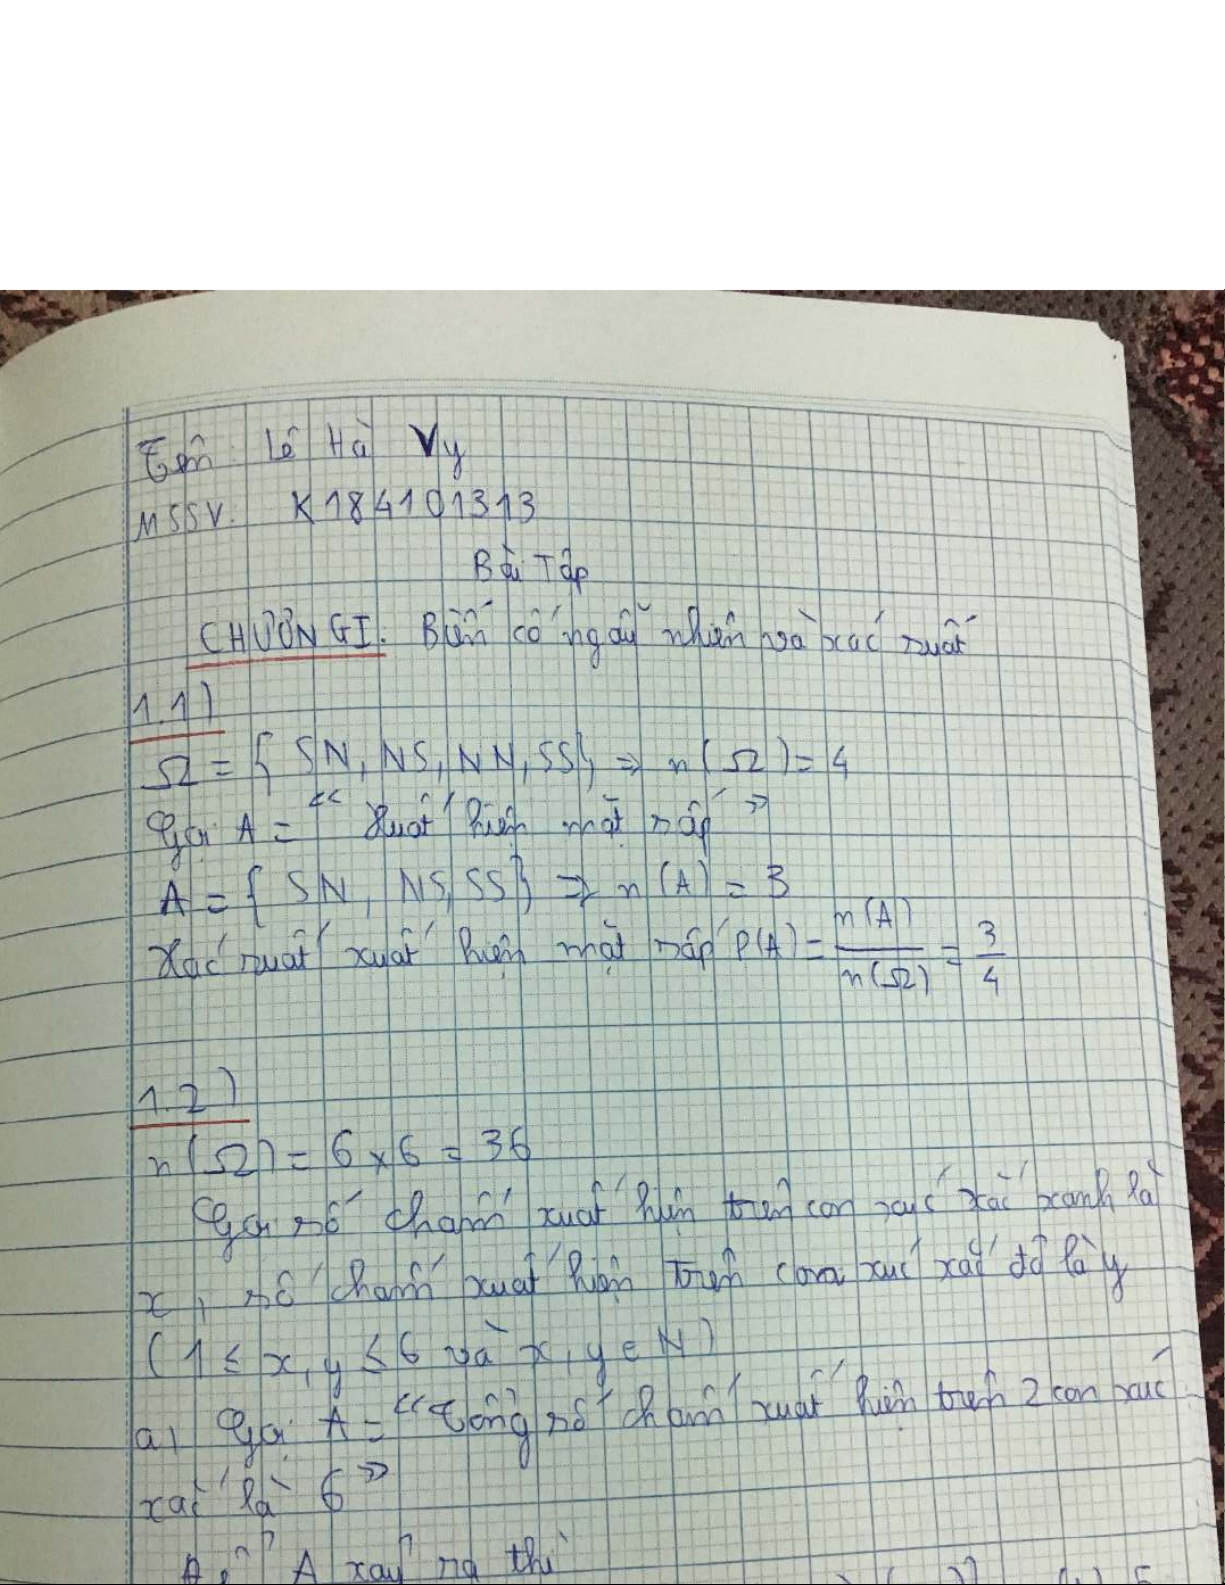 Tên: Lê Hà Vy
MSSV: K184101313
Bài Tập
CHƯƠNG I: Biến cố ngẫu nhiên và xác suất
1.1)
Ω = { SN, NS, NN, SS} => n(Ω) = 4
Gọi A = “ Xuất hiện mặt sấp ”
A = { SN, NS, SS} => n(A) = 3
Xác suất xuất hiện mặt sấp P(A) = n(A)/n(Ω) = 3/4
1.2)
n(Ω) = 6 x 6 = 36
Gọi số chấm xuất hiện trên con xúc xắc xanh là
x, số chấm xuất hiện trên con xúc xắc đỏ là y
( 1 ≤ x, y ≤ 6 và x, y ∈ N )
a) Gọi A = “ tổng số chấm xuất hiện trên 2 con xúc
xắc là 6 ”
A xảy ra thì